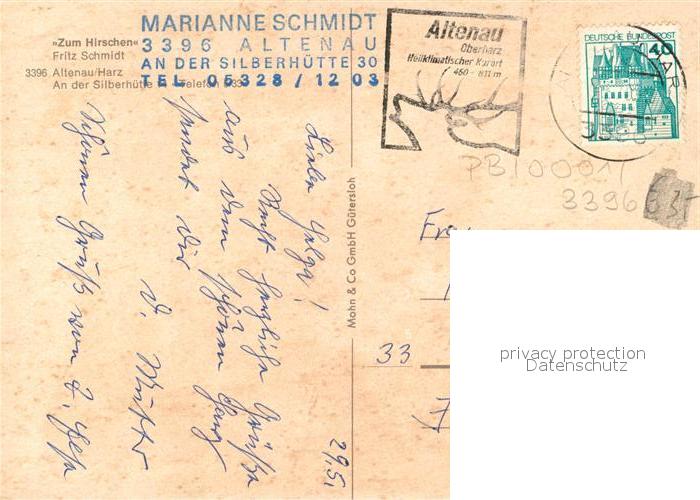 MARIANNE SCHMIDT
3396 ALTENAU
AN DER SILBERHÜTTE 30
TEL. 05328 / 12 03
»Zum Hirschen«
Fritz Schmidt
3396 Altenau/Harz
An der Silberhütte Telefon
Altenau
Oberharz
Heilklimatischer Kurort
450 - 811 m
DEUTSCHE BUNDESPOST
40
PB10001
3396
29.5.
Liebe Helga!
Recht herzliche Grüße
aus dem schönen Harz
sendet Dir
D. Mutter
Schönen Gruß von
Mohn & Co GmbH Gütersloh
33
privacy protection
Datenschutz